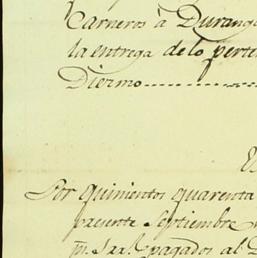 Carneros à Durang
la entrega de lo perte
Diezmo
E
Por quinientos quarenta
presente Septiembre
pagados al